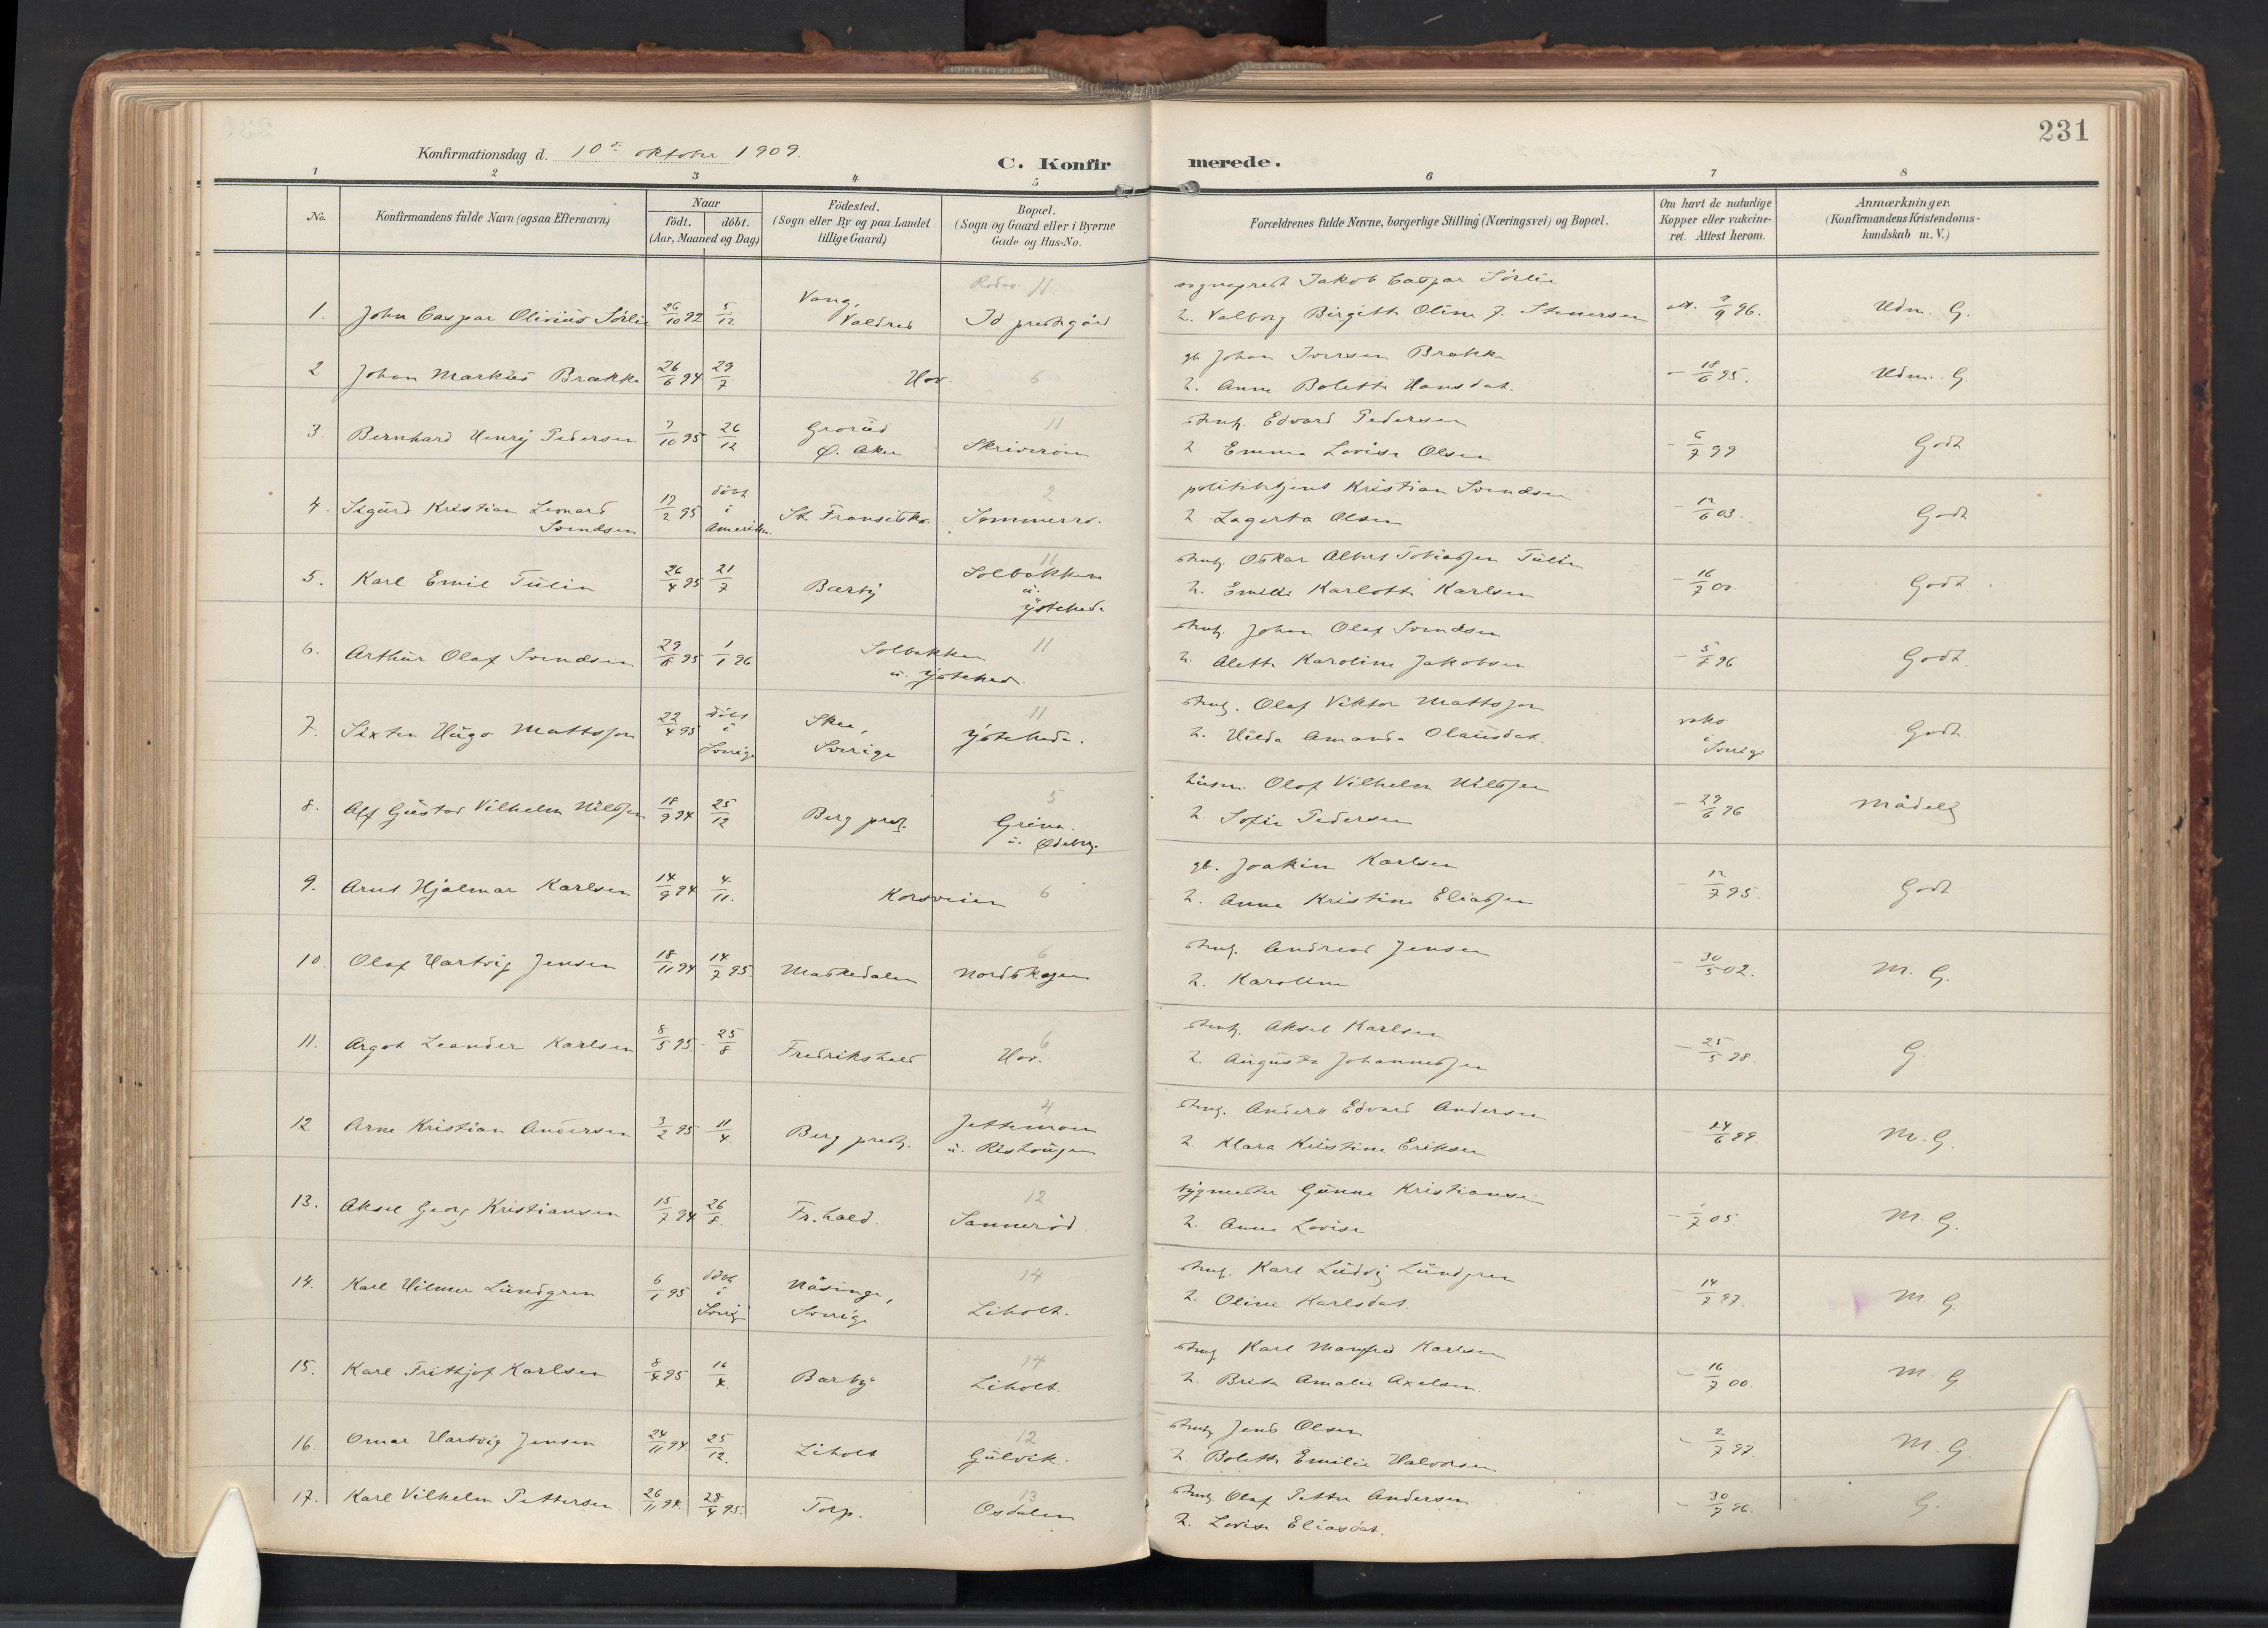 231
Konfirmationsdag d. 10de oktober 1909.
C. Konfirmerede.
1 2 3 4 5 6 7 8
No.
Konfirmandens fulde Navn (ogsaa Efternavn)
Naar
födt. döbt.
(Aar, Maaned og Dag)
Födested.
(Sogn eller By og paa Landet
tillige Gaard)
Bopæl.
(Sogn og Gaard eller i Byerne
Gade og Hus-No.
Forældrenes fulde Navne, borgerlige Stilling (Næringsvei) og Bopæl.
Om havt de naturlige
Kopper eller vakcine-
ret. Attest herom.
Anmærkninger.
(Konfirmandens Kristendoms-
kundskab m. V.)
1. John Caspar Olivius Sörlie 26/10 92 5/12 Vang, Valdres 11 Id prestgård
sogneprest Jakob Caspar Sörlie
2. Valborg Birgitte Oline J. Stenersen att. 7/9 96. Udm. G.
2 Johan Markus Brække 26/6 94 29/7 Hov. 6
gb Johan Iversen Brække
2. Anne Bolette Hansdat. - 18/6 95. Udm. G.
3. Bernhard Henry Pedersen 7/10 95 26/12 Grorud Ø. Aker 11 Skriverøen
Edvard Pedersen
2 Emma Lovise Olsen - 6/7 99 Godt
4. Sigurd Kristian Leonard Svendsen 17/2 95 döbt i Amerika St. Fransisko. 2 Sommerro.
politibetjent Kristian Svendsen
2. Lagerta Olsen - 12/6 03. Godt
5. Karl Emil Tulin 26/4 95 21/7 Bærby 11 Solbakken u. Ystehede
Oskar Albert Tobiassen Tulin
2. Emilie Karlotte Karlsen - 16/7 00 Godt.
6. Arthur Olaf Svendsen 29/8 95 1/1 96 Solbakken u. Ystehed. 11
Johan Olaf Svendsen
2. Alette Karoline Jakobsen - 5/8 96 Godt.
7. Sixten Hugo Mattsson 22/4 95 döbt i Sverige Skee, Sverige 11 Ystehede.
Olaf Viktor Mattsson
2. Hilda Amanda Olausdat. vakc. i Sverige Godt
8. Alf Gustav Vilhelm Nilssen 18/9 94 25/12 Berg prestg. 5 Grina. u. Ødeberg.
husm. Olof Vilhelm Nilssen
2. Sofie Pedersen - 29/6 96 Mådelg
9. Arnt Hjalmar Karlsen 14/9 94 4/11. Korsveien 6
gb. Joakim Karlsen
2. Anna Kristine Eliassen - 12/7 95. Godt
10. Olaf Hartvig Jensen 18/11 94 14/7 95. Maskedalen 6 Nordskogen
Andreas Jensen
2. Karoline - 30/5 02. M. G.
11. Argot Leander Karlsen 8/5 95. 25/8 Fredrikshald 6 Hov.
Aksel Karlsen
2. Augusta Johannessen - 25/5 98. G.
12 Arne Kristian Andersen 3/2 95 11/4. Berg prestg. 4 Jettemoen u. Ristougen
Anders Edvard Andersen
2. Klara Kristine Eriksen - 14/6 99. M. G.
13. Aksel Georg Kristiansen 15/7 94 26/8. Fr.hald. 12 Sannerød.
bygmester Gunne Kristiansen
2. Anne Lovise - 1/7 05. M. G.
14. Karl Hilmer Lundgren 6/1 95 döbt i Sverig Näsinge, Sverige 14 Liholt.
Karl Ludvig Lundgren
2. Oline Karlsdat. - 14/7 97. M. G.
15. Karl Frithjof Karlsen 8/4 95 16/4. Bærby 14 Liholt.
Karl Manfred Karlsen
2. Brita Amalie Axelsen. - 16/7 00. M. G.
16. Omar Hartvig Jensen 24/11 94. 25/12. Liholt 12 Gulvik.
Jens Olsen
2. Bolette Emilie Halvorsen - 2/7 97. M. G.
17. Karl Vilhelm Pettersen. 26/11 94. 28/4 95. Torp. 13 Osdalen
Olaf Petter Andersen
2. Lovise Eliasdat. - 30/7 96. G.